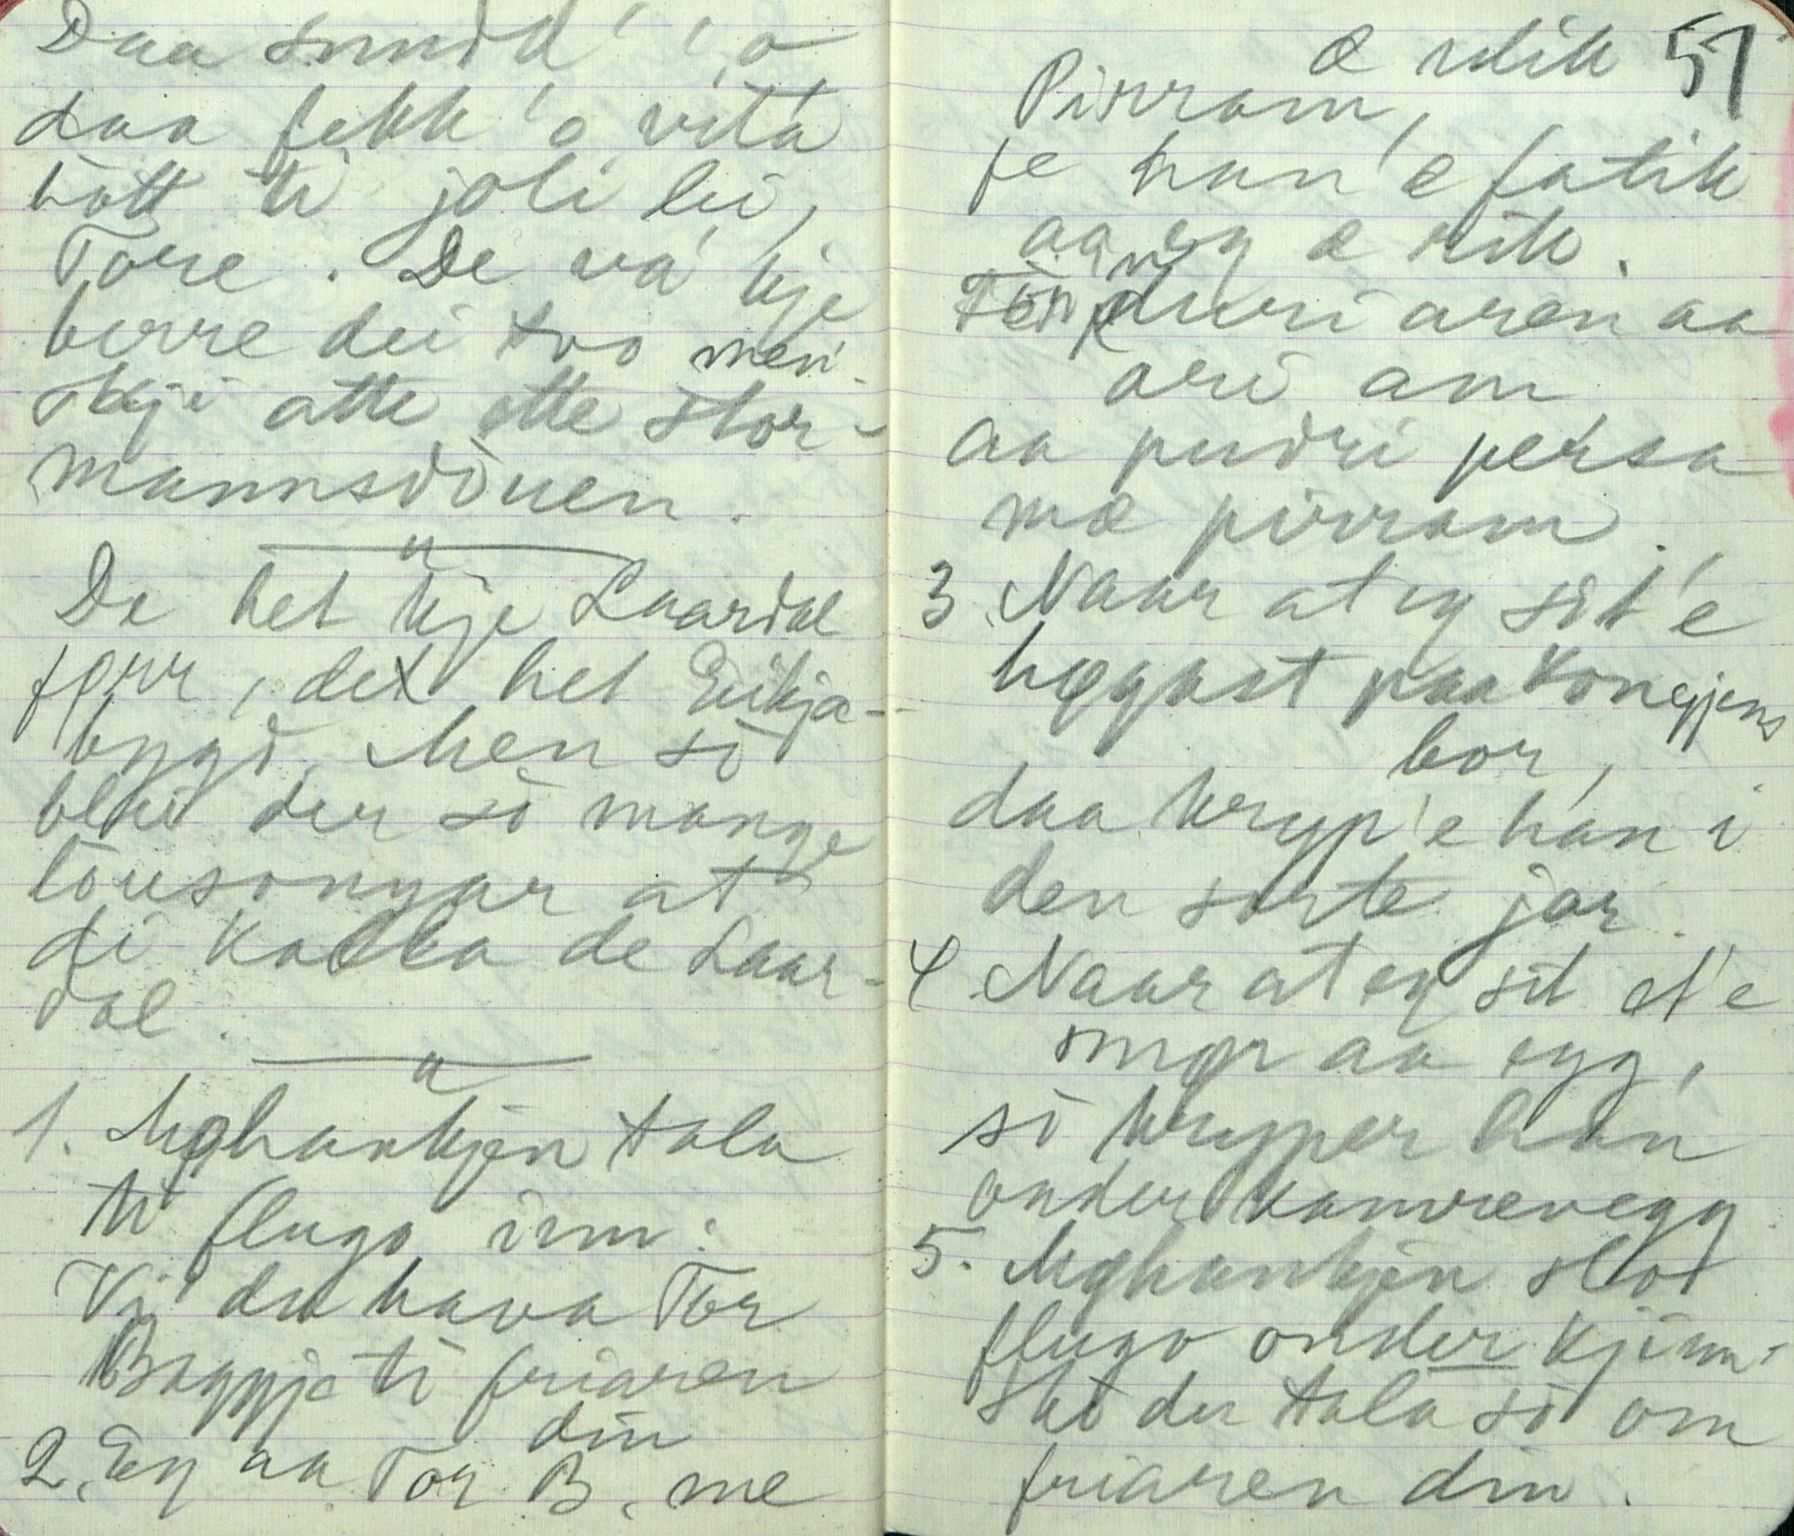 Daa snudd' 'o
daa fekk 'o vita
hått ti joli lei,
Tore. De va kje
berre dei too men-
skji atte ette stor-
mannsdòuen.
De het kje Laardal
førr, det het Eikja-
bygd. Men sò
blei der sò mange
lòusongar at
di kalla de Laar-
dal.
1. Myhankjen tala
ti flugo inn:
Vi' du hava Tor
Baggje ti friaren
din
2. Eg aa Tor B. me
57
æ slik
Pirram,
fe han 'æ fatik
aa eg æ rik.
duri aren aa
ari am
aa pudri persa
mæ pirram.
3. Naar at eg sit 'e
høgast paa kongjens
bor,
daa kryp 'e han i
den sorte jor.
4. Naar at eg sit et'e
smør aa egg,
sò kryper han
onder kamrevegg.
5. Myhankjen slo
flugo onder kjinn-
skò der tala sò om
friaren din.